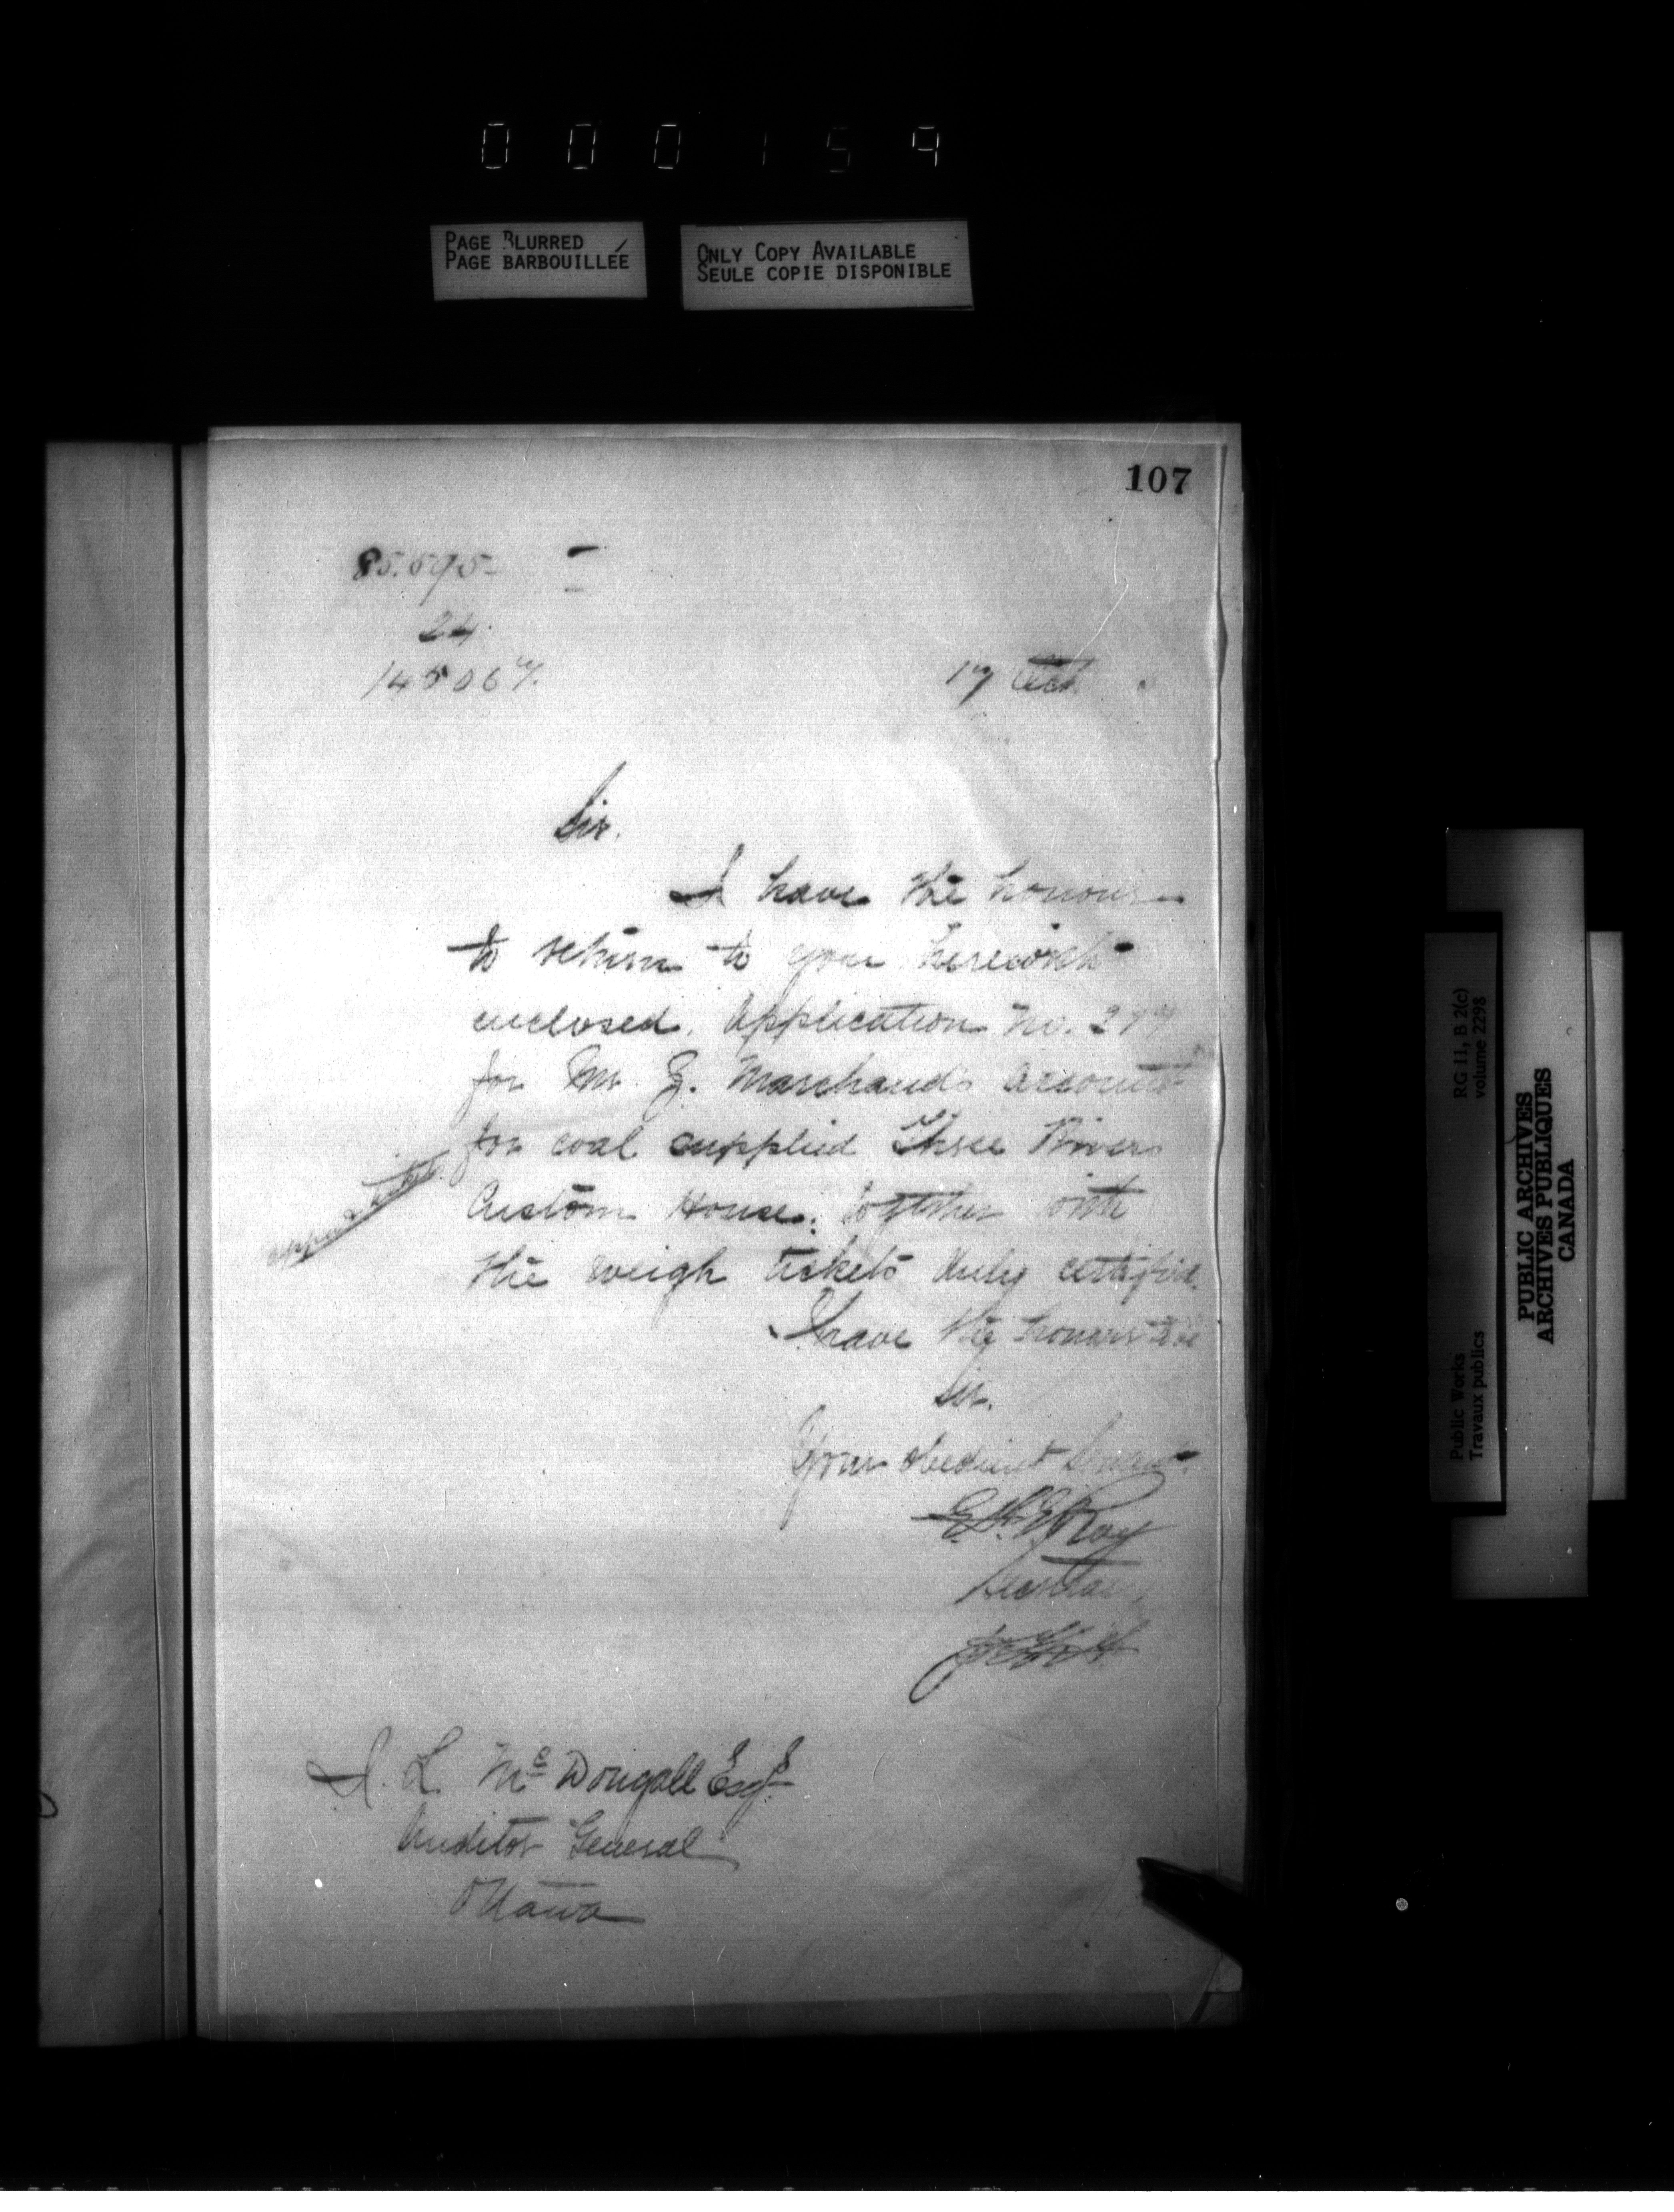 000159
PAGE BLURRED
PAGE BARBOUILLÉE
ONLY COPY AVAILABLE
SEULE COPIE DISPONIBLE
107
85.595
24.
145067.
17 Oct
Sir.
I have the honour
to return to you herewith
enclosed. Application No. 277
for Mr. Z. Marchand's account
for coal supplied Three Rivers
Custom House, together with
the weigh tickets duly certified.
I have the honour to be
Sir.
Your obedient Servant
E.F.E. Roy
Secretary
I. L. Mc Dougall Esqre
Auditor General
Ottawa
RG 11, B 2(c)
volume 2298
Public Works
Travaux publics
PUBLIC ARCHIVES
ARCHIVES PUBLIQUES
CANADA